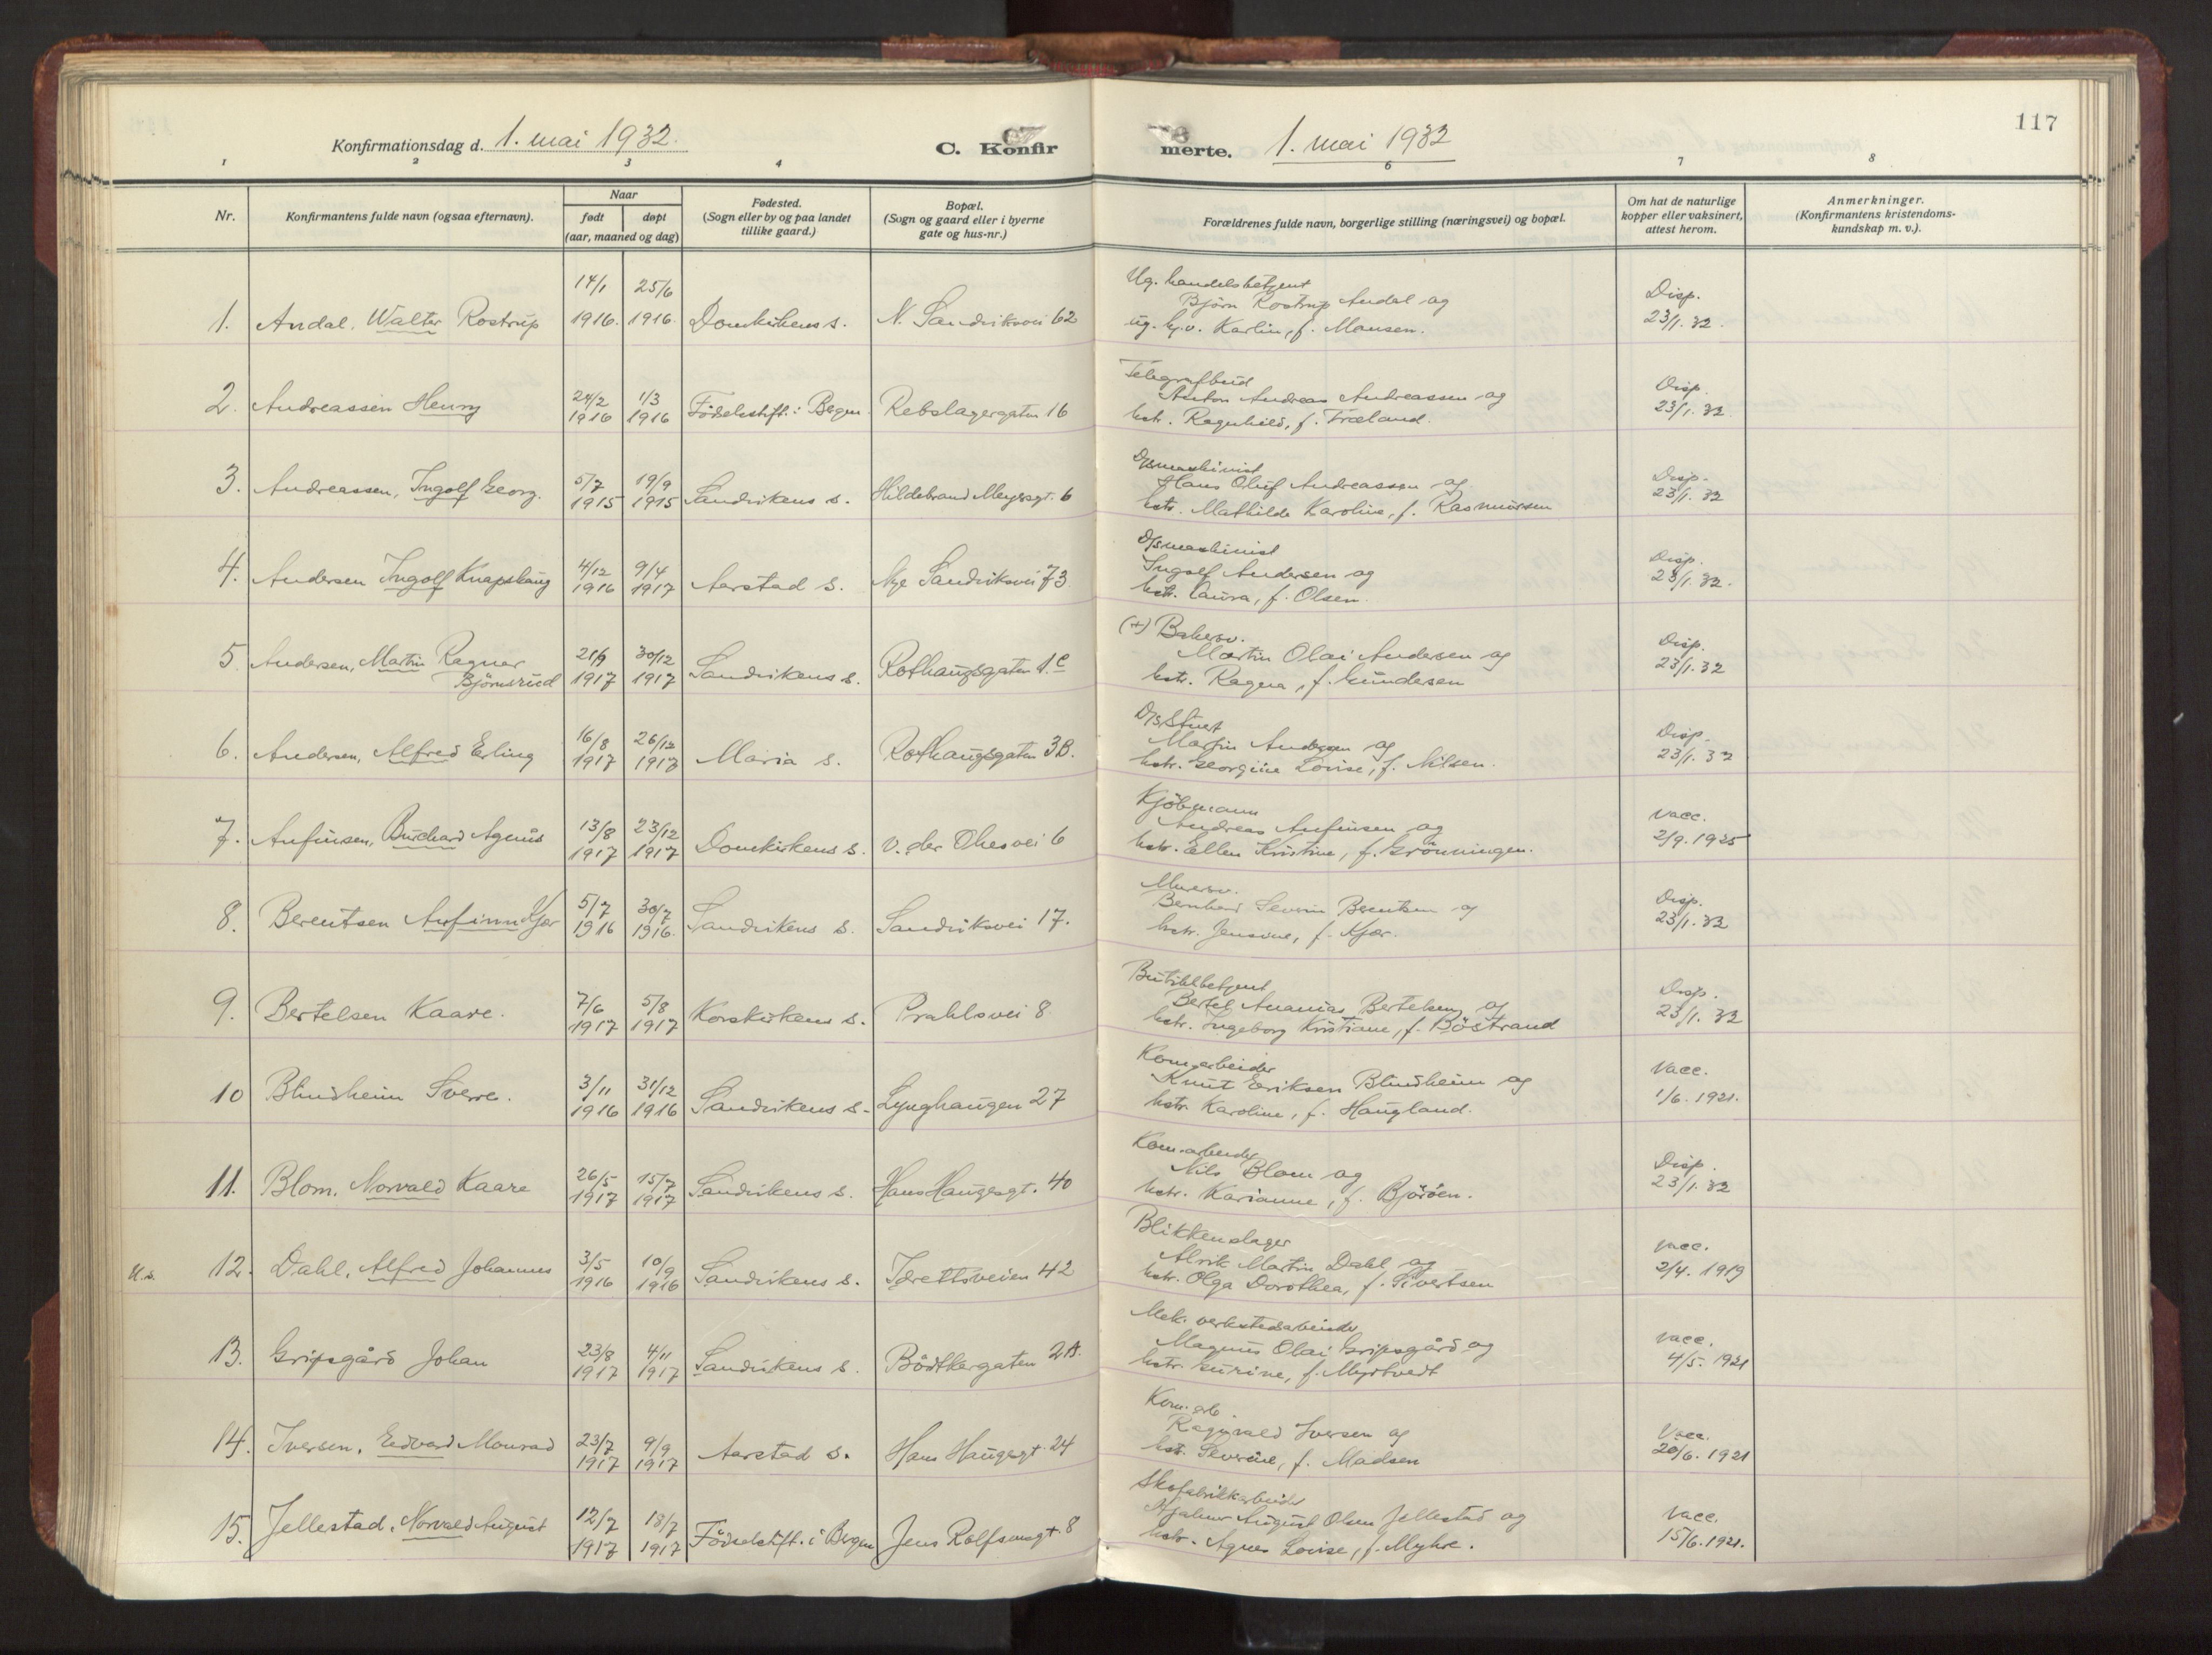 117
Konfirmationsdag d. 1. mai 1932.
C. Konfirmerte. 1. mai 1932
1 2 3 4 6 7 8
Nr.
Konfirmantens fulde navn (ogsaa efternavn).
Naar
født døpt
(aar, maaned og dag)
Fødested.
(Sogn eller by og paa landet
tillike gaard.)
Bopæl.
(Sogn og gaard eller i byerne
gate og hus-nr.)
Forældrenes fulde navn, borgerlige stilling (næringsvei) og bopæl.
Om hat de naturlige
kopper eller vaksinert,
attest herom.
Anmerkninger.
(Konfirmantens kristendoms-
kundskap m. v.).
1. Andal, Walter Rostrup
14/1 1916. 25/6 1916.
Domkirkens s.
N. Sandviksvei 62
Ug. handelsbetjent
Bjørn Rostrup Andal og
ug. hj.v. Karlin, f. Monsen.
Disp.
23/1. 32.
2. Andreassen Henry
24/2 1916 1/3 1916
Födselsstift. i Bergen.
Rebslagergaten 16
Telegrafbud
Anton Andreas Andreassen og
hstr. Ragnhild, f. Træland.
Disp.
23/1. 32.
3. Andreassen, Ingolf Georg.
5/7 1915 19/9 1915
Sandvikens s.
Hildebrand Meyersgt. 6
D/smaskinist
Hans Oluf Andreassen og
hstr. Mathilde Karoline, f. Rasmussen
Disp.
23/1. 32
4. Andersen Ingolf Knapskaug
4/12 1916 9/4 1917
Aarstad s.
Nye Sandviksvei 73
D/smaskinist
Ingolf Andersen og
hstr. Laura, f. Olsen.
Disp.
23/1. 32.
5. Andersen, Martin Ragner
Björnsrud
21/9 1917 30/12 1917
Sandvikens s.
Rothaugsgaten 1c
(+) Bakersv.
Martin Olai Andersen og
hstr. Ragna, f. Gundersen
Disp.
23/1. 32
6. Andersen, Alfred Erling
16/8 1917 26/12 1917
Maria s.
Rothaugsgaten 3B.
D/s Stuert
Martin Andersen og
hstr. Georgine Lovise, f. Nilsen.
Disp.
23/1. 32
7. Anfinsen, Burchard Agnus
13/8 1917 23/12 1917
Domkirkens s.
v. der Ohesvei 6
Kjöbmann
Andreas Anfinsen og
hstr. Ellen Kristine, f. Grönningen.
Vacc.
2/9. 1925
8. Berentsen Arfinn Kjær
5/7 1916 30/7 1916.
Sandvikens s.
Sandviksvei 17.
Murersv.
Bernhard Severin Berentsen og
hstr. Jensine, f. Kjær.
Disp.
23/1. 32
9. Bertelsen Kaare.
7/6 1917 5/8 1917
Korskirkens s.
Prahlsvei 8
Butikkbetjent
Bertel Ananias Bertelsen og
hstr. Ingeborg Kristiane, f. Böstrand
Disp.
23/1. 32
10 Blindheim Sverre.
3/11 1916 31/12 1916
Sandvikens s.
Lynghaugen 27
Kom.arbeider
Knut Eriksen Blindheim og
hstr. Karoline, f. Haugland.
Vacc.
1/6. 1921.
11. Blom. Norvald Kaare
26/5 1917 15/7 1917
Sandvikens s.
Hans Haugesgt. 40
Kom.arbeider
Nils Blom og
hstr. Karianne, f. Björöen.
Disp.
23/1. 32
U.s. 12. Dahl, Alfred Johannes
3/5 1916 10/9 1916
Sandvikens s.
Idrettsveien 42
Blikkenslager
Alrik Martin Dahl og
hstr. Olga Dorothea, f. Sivertsen
Vacc.
2/4. 1919
13. Gripsgård Johan
23/8 1917 4/11 1917
Sandvikens s.
Bödtkergaten 2A.
Mek. verkstedsarbeider
Magnus Olai Gripsgård og
hstr. Gurine, f. Myrtvedt
Vacc.
4/5. 1921
14. Iversen, Edvard Monrad
23/7 1917 9/9 1917
Aarstad s.
Hans Haugesgt. 24
Kom. arb.
Ragnvald Iversen og
hstr. Severine, f. Madsen
Vacc.
20/6. 1921
15. Jellestad, Norvald August
12/7 1917 18/7 1917
Födselsstift. i Bergen
Jens Rolfsensgt. 8
Skofabrikkarbeider
Hjalmar August Olsen Jellestad og
hstr. Agnes Lovise, f. Myhre.
Vacc.
15/6. 1921.